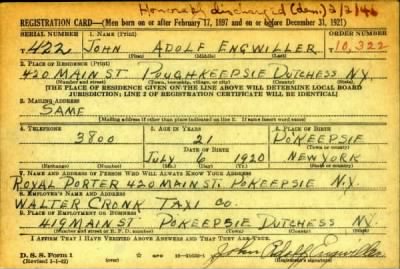 Honorably discharged (dem) 2/2/46
REGISTRATION CARD—(Men born on or after February 17, 1897 and on or before December 31, 1921)
SERIAL NUMBER 1. NAME (Print) ORDER NUMBER
T422 JOHN ADOLF ENGWILLER T10,322
(First) (Middle) (Last)
2. PLACE OF RESIDENCE (Print)
420 MAIN ST POUGHKEEPSIE DUTCHESS N.Y.
[THE PLACE OF RESIDENCE GIVEN ON THE LINE ABOVE WILL DETERMINE LOCAL BOARD
JURISDICTION; LINE 2 OF REGISTRATION CERTIFICATE WILL BE IDENTICAL]
3. MAILING ADDRESS
SAME
[Mailing address if other than place indicated on line 2. If same insert word same]
4. TELEPHONE 5. AGE IN YEARS 6. PLACE OF BIRTH
3800 21 POKEEPSIE
DATE OF BIRTH
JULY 6 1920 NEW YORK
(Exchange) (Number) (Mo.) (Day) (Yr.) (State or country)
7. NAME AND ADDRESS OF PERSON WHO WILL ALWAYS KNOW YOUR ADDRESS
ROYAL PORTER 420 MAIN ST. POKEEPSIE N.Y.
8. EMPLOYER'S NAME AND ADDRESS
WALTER CRONK TAXI CO.
9. PLACE OF EMPLOYMENT OR BUSINESS
416 MAIN ST POKEEPSIE DUTCHESS N.Y.
(Number and street or R. F. D. number) (Town) (County) (State)
I AFFIRM THAT I HAVE VERIFIED ABOVE ANSWERS AND THAT THEY ARE TRUE.
D. S. S. Form 1
John Adolf Engwiller